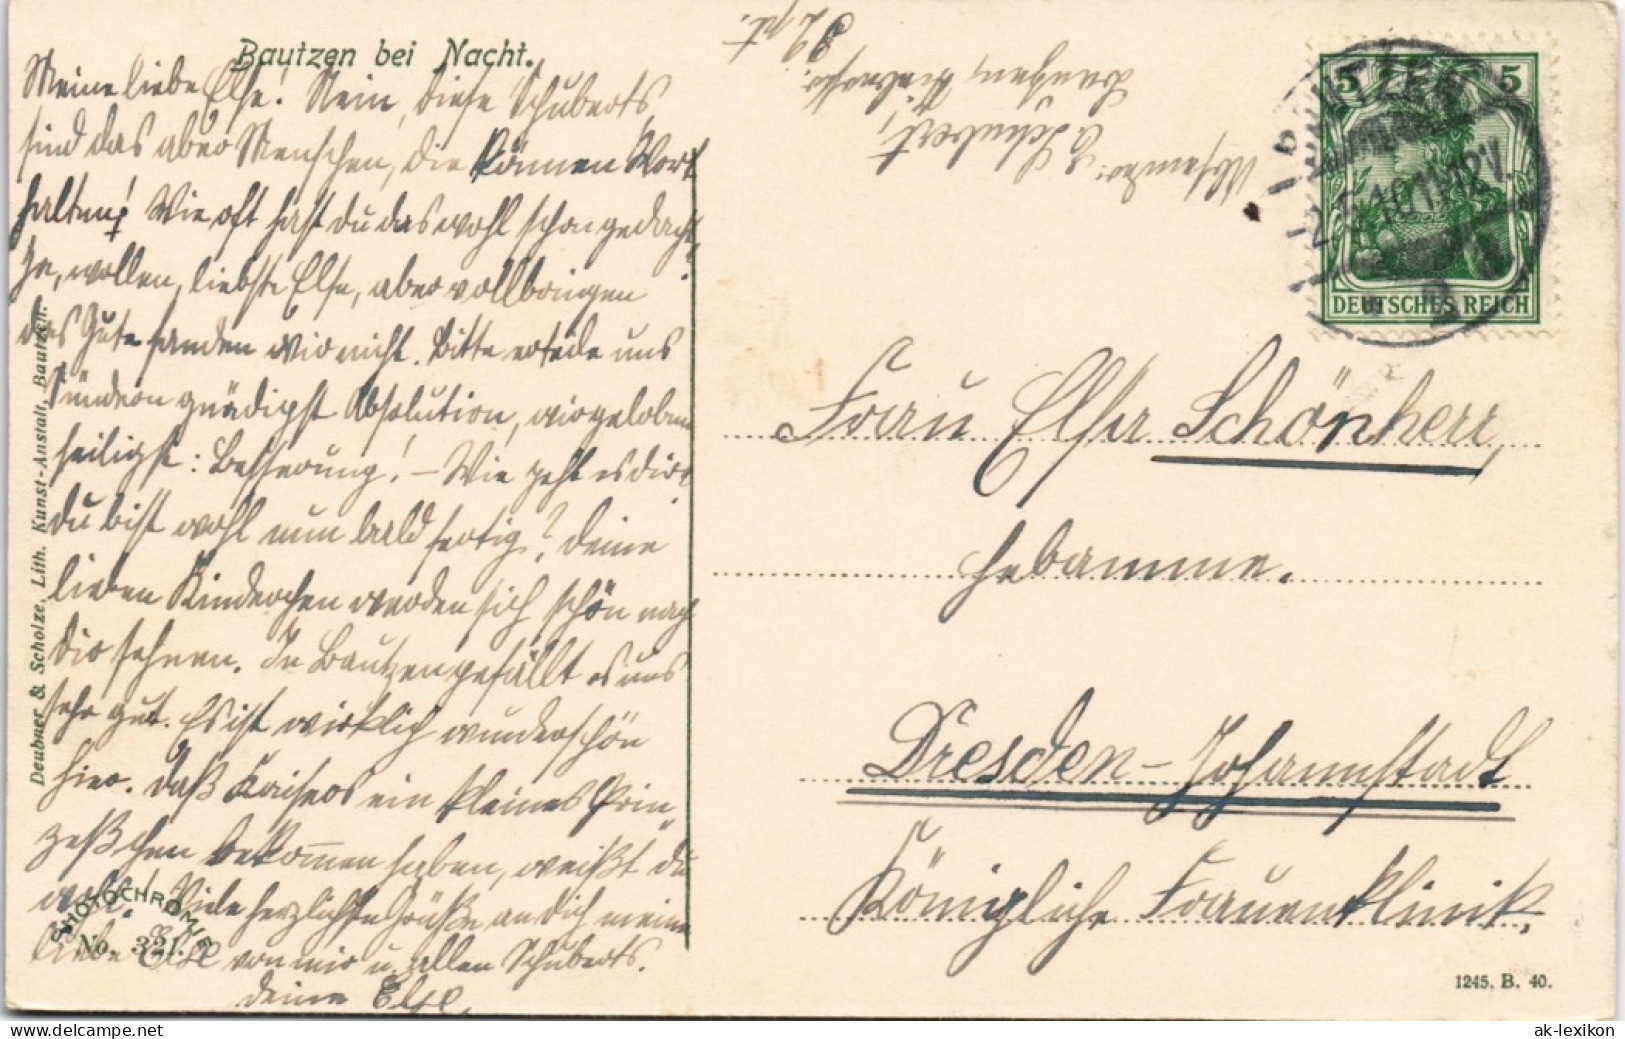 Bautzen bei Nacht.
Meine liebe Else! Nein, diese Schuberts,
sind das aber Menschen, die können Wort
halten! Wie oft hast du das wohl schon gedacht,
Ja, wollen, liebste Else, aber vollbringen
das Gute fanden wir nicht. Bitte erteile uns
Sündern gnädigst Absolution, wir geloben
heiligst: Besserung! – Wie geht es dir?
Du bist wohl nun bald fertig? Deine
lieben Kinderchen werden sich schön nach
dir sehnen. In Bautzen gefällt es uns
sehr gut. Es ist wirklich wunderschön
hier. Daß Kaisers ein kleines Prin„
zeßchen bekommen haben, weißt du
wohl. Viele herzlichste Grüße an dich meine
liebe Else von mir u. allen Schuberts.
Deine Else.
Deubner & Scholze, Lith. Kunst-Anstalt, Bautzen.
PHOTOCHROMIE
No. 321.
Absender: E. Schubert,
Bautzen,
BAUTZEN
5 5
DEUTSCHES REICH
Frau Elsa Schönherr,
Hebamme.
Dresden-Johannstadt
Königliche Frauenklinik,
1245. B. 40.
ak-lexikon